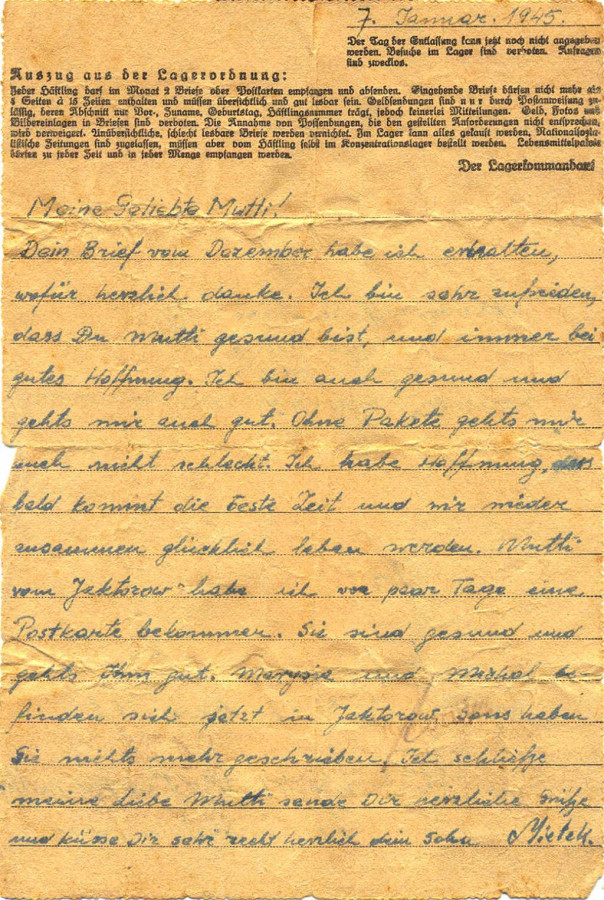 7. Januar. 1945.
Der Tag der Entlassung kann jetzt noch nicht angegeben
werden. Besuche im Lager sind verboten. Anfragen
sind zwecklos.
Auszug aus der Lagerordnung:
Jeder Häftling darf im Monat 2 Briefe oder Postkarten empfangen und absenden. Eingehende Briefe dürfen nicht mehr als
4 Seiten à 15 Zeilen enthalten und müssen übersichtlich und gut lesbar sein. Geldsendungen sind nur durch Postanweisung zu-
lässig, deren Abschnitt nur Vor-, Zuname, Geburtstag, Häftlingsnummer trägt, jedoch keinerlei Mitteilungen. Geld, Fotos und
Bildereinlagen in Briefen sind verboten. Die Annahme von Postsendungen, die den gestellten Anforderungen nicht entsprechen,
wird verweigert. Unübersichtliche, schlecht lesbare Briefe werden vernichtet. Im Lager kann alles gekauft werden. Nationalsozia-
listische Zeitungen sind zugelassen, müssen aber vom Häftling selbst im Konzentrationslager bestellt werden. Lebensmittelpakete
dürfen zu jeder Zeit und in jeder Menge empfangen werden.
Der Lagerkommandant
Meine Geliebte Mutti!
Dein Brief vom Dezember habe ich erhalten,
wofür herzlich danke. Ich bin sehr zufrieden,
dass Du Mutti gesund bist, und immer bei
gutes Hoffnung. Ich bin auch gesund und
gehts mir auch gut. Ohne Pakete gehts mir
auch nicht schlecht. Ich habe Hoffnung, dass
bald kommt die beste Zeit und wir wieder
zusammen glücklich leben werden. Mutti
vom Jaktorow habe ich vor paar Tage eine
Postkarte bekommen. Sie sind gesund und
gehts Ihm gut. Marysia und Michal be
finden sich jetzt in Jaktorow, sons haben
Sie nichts mehr geschrieben. Ich schließe
meine Liebe Mutti sende Dir herzliche Grüße
und küsse Dir sehr recht herzlich dein Sohn Mietek.